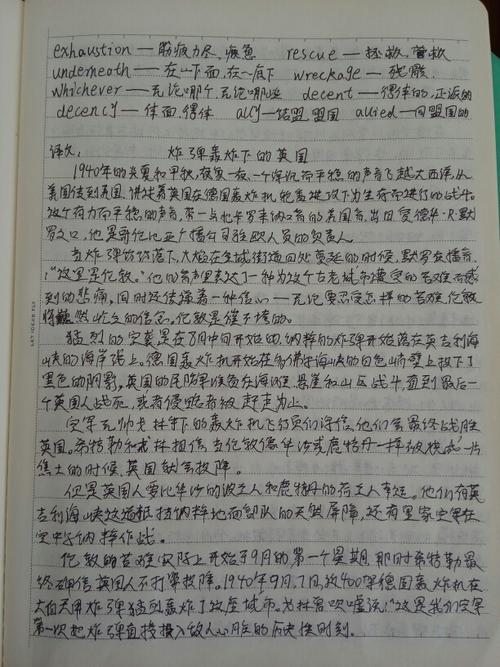 exhaustion — 筋疲力尽,疲惫 rescue — 拯救,营救
underneath — 在…下面,在…底下 wreckage — 残骸
whichever — 无论哪个,无论哪些 decent — 得体的,正派的
decency — 体面,得体 ally — 结盟,盟国 allied — 同盟国的
译文: 炸弹轰炸下的英国
1940年的炎夏和早秋,夜复一夜,一个深沉而平稳的声音飞越大西洋,从
美国传到英国,讲述着英国在德国轰炸机轮番进攻下为生存而进行的战斗。
这个有力而平稳的声音,带一点北卡罗来纳口音的美国音,出自爱德华·R·默
罗之口,他是哥伦比亚广播公司驻欧人员的负责人。
当炸弹纷纷落下,大焰在全城街道四处蔓延的时候,默罗在播音
:“这里是伦敦。”他的声里表达了一种为这个古老城市遭受的苦难而感
到的悲痛,同时这传递着一种信心——无论要忍受怎样的苦难,伦敦
将屹然屹立的信念。伦敦是摧不垮的。
猛烈的突袭是在8月中间开始的,纳粹的炸弹开始落在英吉利海
峡的海岸线上。德国轰炸机开始在多佛尔海峡的白色峭壁上投下了
黑色的阴影,英国的民防军准备在海滩、悬崖和山区战斗,直到最后一
个英国人战死,或者侵略者被赶走为止。
空军元帅戈林手下的轰炸机飞行员们深信,他们会最终战胜
英国。希特勒和戈林相信,当伦敦像华沙或鹿特丹一样被烧成一片
焦土的时候,英国就会投降。
但是英国人要比华沙的波兰人和鹿特丹的荷兰人幸运。他们有英
吉利海峡这道抵抗纳粹地面部队的天然屏障,还有皇家空军在
空中与纳粹作战。
伦敦的苦难实际上开始于9月的第一个星期,那时希特勒最
终确信英国人不打算投降。1940年9月7日,近400架德国轰炸机在
大白天用炸弹猛烈轰炸了这座城市。戈林曾吹嘘说:“这是我们空军
第一次把炸弹直接投入敌人心脏的历史性时刻。